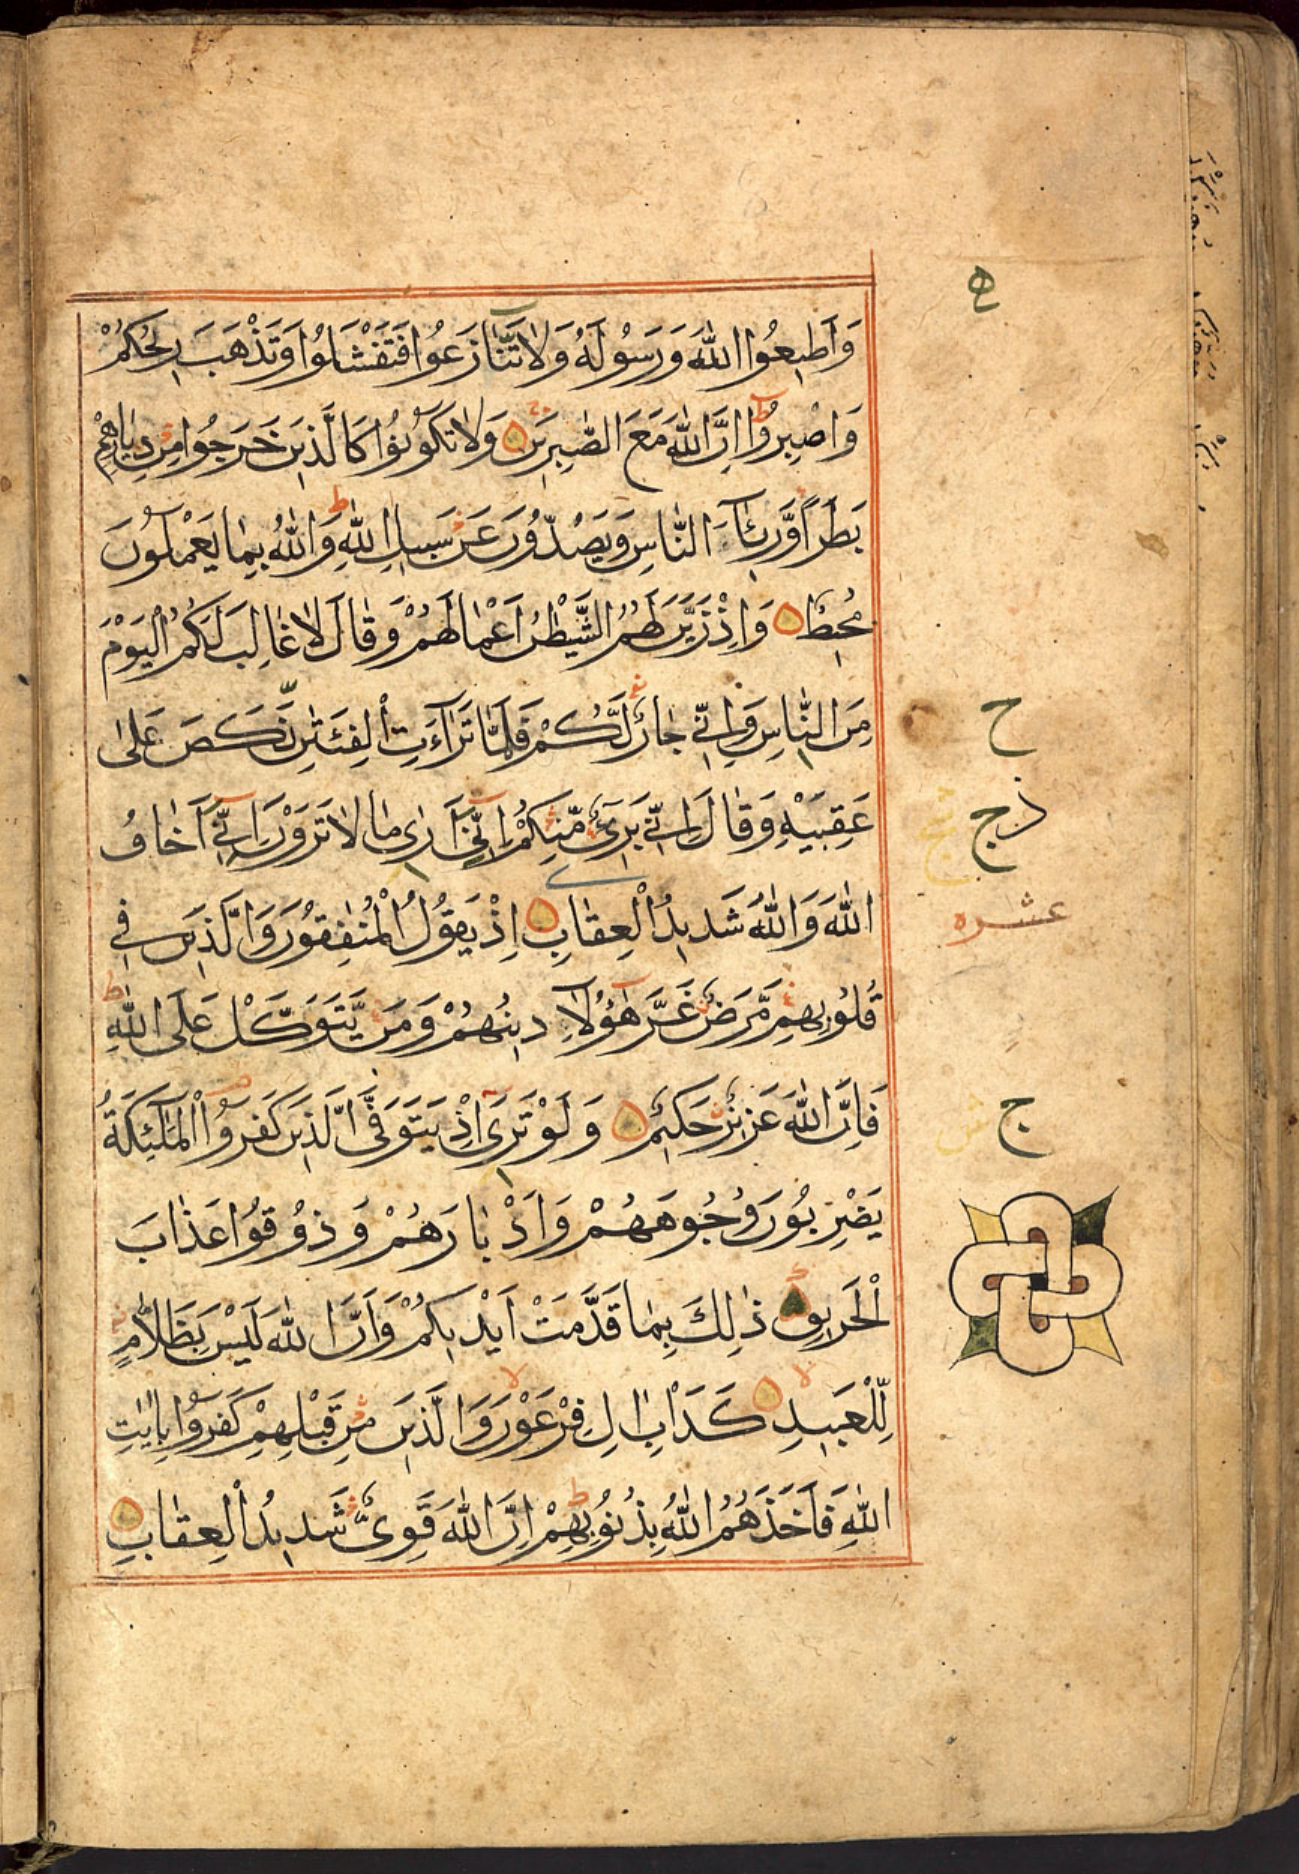 وَاَطٖيعُوا اللّٰهَ وَرَسُولَهُ وَلَا تَنَازَعُوا فَتَفْشَلُوا وَتَذْهَبَ رٖيحُكُمْ
وَاصْبِرُوا اِنَّ اللّٰهَ مَعَ الصّٰبِرٖينَ وَلَا تَكُونُوا كَالَّذٖينَ خَرَجُوا مِنْ دِيَارِهِمْ
بَطَرًا وَّرِئَآءَ النَّاسِ وَيَصُدُّونَ عَنْ سَبٖيلِ اللّٰهِ وَاللّٰهُ بِمٰا يَعْمَلُونَ
مُحٖيطٌ وَاِذْ زَيَّنَ لَهُمُ الشَّيْطٰنُ اَعْمٰالَهُمْ وَقٰالَ لَا غٰالِبَ لَكُمُ الْيَوْمَ
مِنَ النّٰاسِ وَاِنّٖي جٰارٌ لَّكُمْ فَلَمّٰا تَرَآءَتِ الْفِئَتٰنِ نَكَصَ عَلٰى
عَقِبَيْهِ وَقٰالَ اِنّٖي بَرِیٓءٌ مِّنْكُمْ اِنّٖٓي اَرٰى مٰا لَا تَرَوْنَ اِنّٖٓي اَخٰافُ
اللّٰهَ وَاللّٰهُ شَدٖيدُ الْعِقٰابِ اِذْ يَقُولُ الْمُنٰفِقُونَ وَالَّذٖينَ فٖي
قُلُوبِهِمْ مَّرَضٌ غَرَّ هٰٓؤُلَآءِ دٖينُهُمْ وَمَنْ يَّتَوَكَّلْ عَلَى اللّٰهِ
فَاِنَّ اللّٰهَ عَزٖيزٌ حَكٖيمٌ وَلَوْ تَرٰٓى اِذْ يَتَوَفَّى الَّذٖينَ كَفَرُوا الْمَلٰٓئِكَةُ
يَضْرِبُونَ وُجُوهَهُمْ وَاَدْبٰارَهُمْ وَذُوقُوا عَذٰابَ
الْحَرٖيقِ ذٰلِكَ بِمٰا قَدَّمَتْ اَيْدٖيكُمْ وَاَنَّ اللّٰهَ لَيْسَ بِظَلَّامٍ
لِّلْعَبٖيدِ كَدَاْبِ اٰلِ فِرْعَوْنَ وَالَّذٖينَ مِنْ قَبْلِهِمْ كَفَرُوا بِاٰيٰتِ
اللّٰهِ فَاَخَذَهُمُ اللّٰهُ بِذُنُوبِهِمْ اِنَّ اللّٰهَ قَوِیٌّ شَدٖيدُ الْعِقٰابِ
ح
ذ ج
عشره
ج